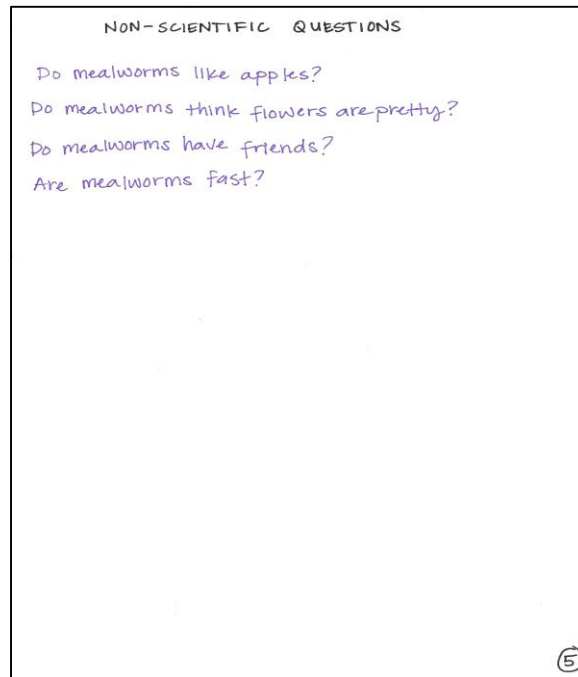 NON-SCIENTIFIC QUESTIONS
Do mealworms like apples?
Do mealworms think flowers are pretty?
Do mealworms have friends?
Are mealworms fast?
5